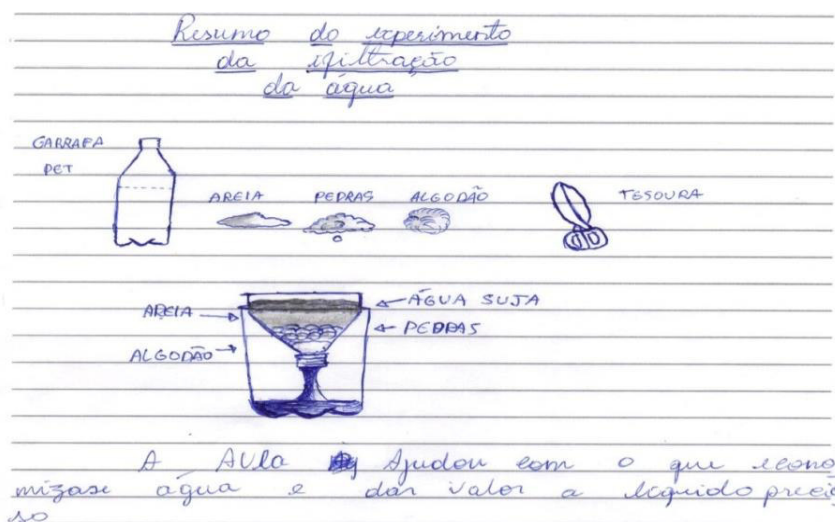 Resumo do experimento
da efiltração
da água
GARRAFA
PET
AREIA PEDRAS ALGODÃO TESOURA
AREIA ÁGUA SUJA
ALGODÃO PEDRAS
A AULA Ajudou com o que econo
mizase água e dar valor a liquido preci
so